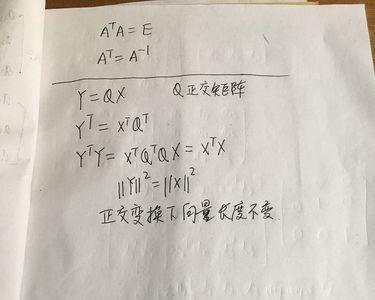 AᵀA = E
Aᵀ = A⁻¹
Y = QX Q正交矩阵
Yᵀ = XᵀQᵀ
YᵀY = XᵀQᵀQX = XᵀX
||Y||² = ||X||²
正交变换下向量长度不变